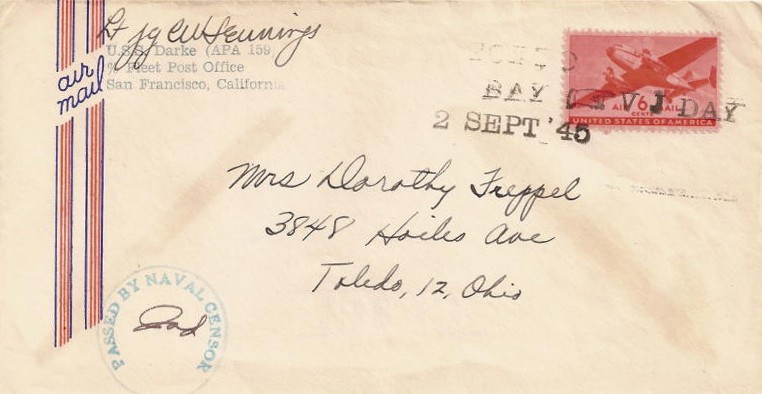 Lt jg CW Jennings
U.S.S. Darke (APA 159)
℅ Fleet Post Office
San Francisco, California
air
mail
TOKYO
BAY VJ DAY
2 SEPT '45
AIR 6 MAIL
CENTS
UNITED STATES OF AMERICA
Mrs Dorothy Freppel
3848 Hoiles Ave
Toledo, 12, Ohio
PASSED BY NAVAL CENSOR